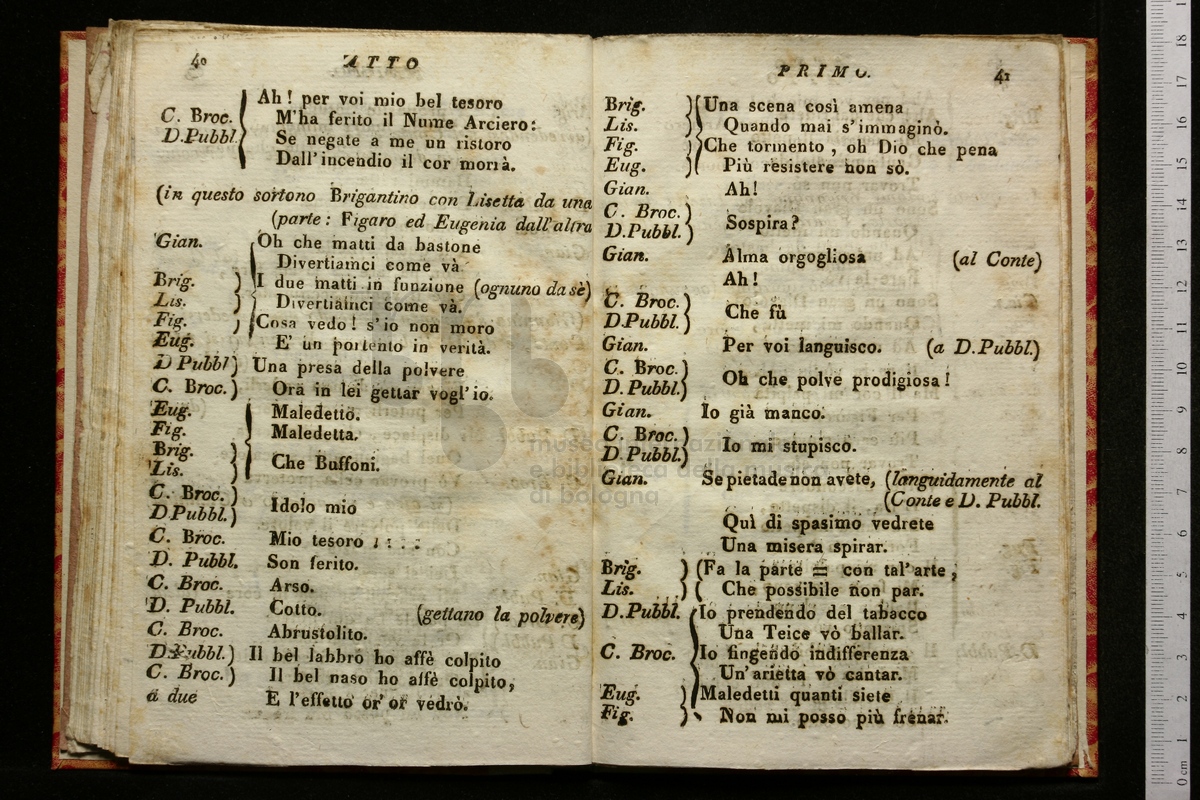 40 ATTO
Ah! per voi mio bel tesoro
C. Broc. M'ha ferito il Nume Arciero:
D.Pubbl. Se negate a me un ristoro
Dall'incendio il cor morrà.
(in questo sortono Brigantino con Lisetta da una
(parte: Figaro ed Eugenia dall'altra
Gian. Oh che matti da bastone
Divertiamci come và
Brig. ) I due matti in funzione (ognuno da sè)
Lis. ) Divertiamci come và.
Fig. ) Cosa vedo! s'io non moro
Eug. E' un portento in verità.
D Pubbl) Una presa della polvere
C. Broc.) Ora in lei gettar vogl'io.
Eug. Maledetto.
Fig. Maledetta.
Brig. )
Lis. ) Che Buffoni.
C. Broc.)
D Pubbl.) Idolo mio
C. Broc. Mio tesoro : : : :
D. Pubbl. Son ferito.
C. Broc. Arso.
D. Pubbl. Cotto. (gettano la polvere)
C. Broc. Abrustolito.
D.Pubbl.) Il bel labbro ho affè colpito
C. Broc.) Il bel naso ho affè colpito,
a due E l'effetto or' or vedrò.
PRIMO. 41
Brig. )(Una scena così amena
Lis. )( Quando mai s'immaginò.
Fig. )(Che tormento, oh Dio che pena
Eug. )( Più resistere non sò.
Gian. Ah!
C. Broc.)
D.Pubbl.) Sospira?
Gian. Alma orgogliosa (al Conte)
Ah!
C. Broc.)
D.Pubbl.) Che fù
Gian. Per voi languisco. (a D.Pubbl.)
C. Broc.)
D.Pubbl.) Oh che polve prodigiosa!
Gian. Io già manco.
C. Broc.)
D.Pubbl.) Io mi stupisco.
Gian. Se pietade non avete, (languidamente al
(Conte e D. Pubbl.
Quì di spasimo vedrete
Una misera spirar.
Brig. ) (Fa la parte = con tal'arte,
Lis. ) ( Che possibile non par.
D.Pubbl. Io prendendo del tabacco
Una Teice vò ballar.
C. Broc. Io fingendo indifferenza
Un'arietta vò cantar.
Eug. ) Maledetti quanti siete
Fig. ) Non mi posso più frenar.
museo
e biblioteca della musica
di bologna